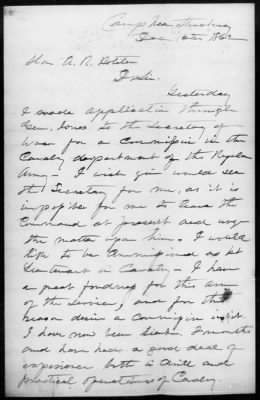 Camp near Strasburg
Dec 16th 1862
Hon A. R. Boteler
Dr Sir.
Yesterday
I made application through
Gen. Jones to the Secretary of
War for a Commission in the
Cavalry department of the Regular
Army - I wish you would see
the Secretary for me, as it is
impossible for me to leave the
Command at present and urge
the matter upon him. I would
like to be Commissioned as 1st
Lieutenant in Cavalry - I have
a great fondness for this arm
of the service, and for this
reason desire a commission in it.
I have now been months
and have had a good deal of
experience both in drill and
practical operations of Cavalry.